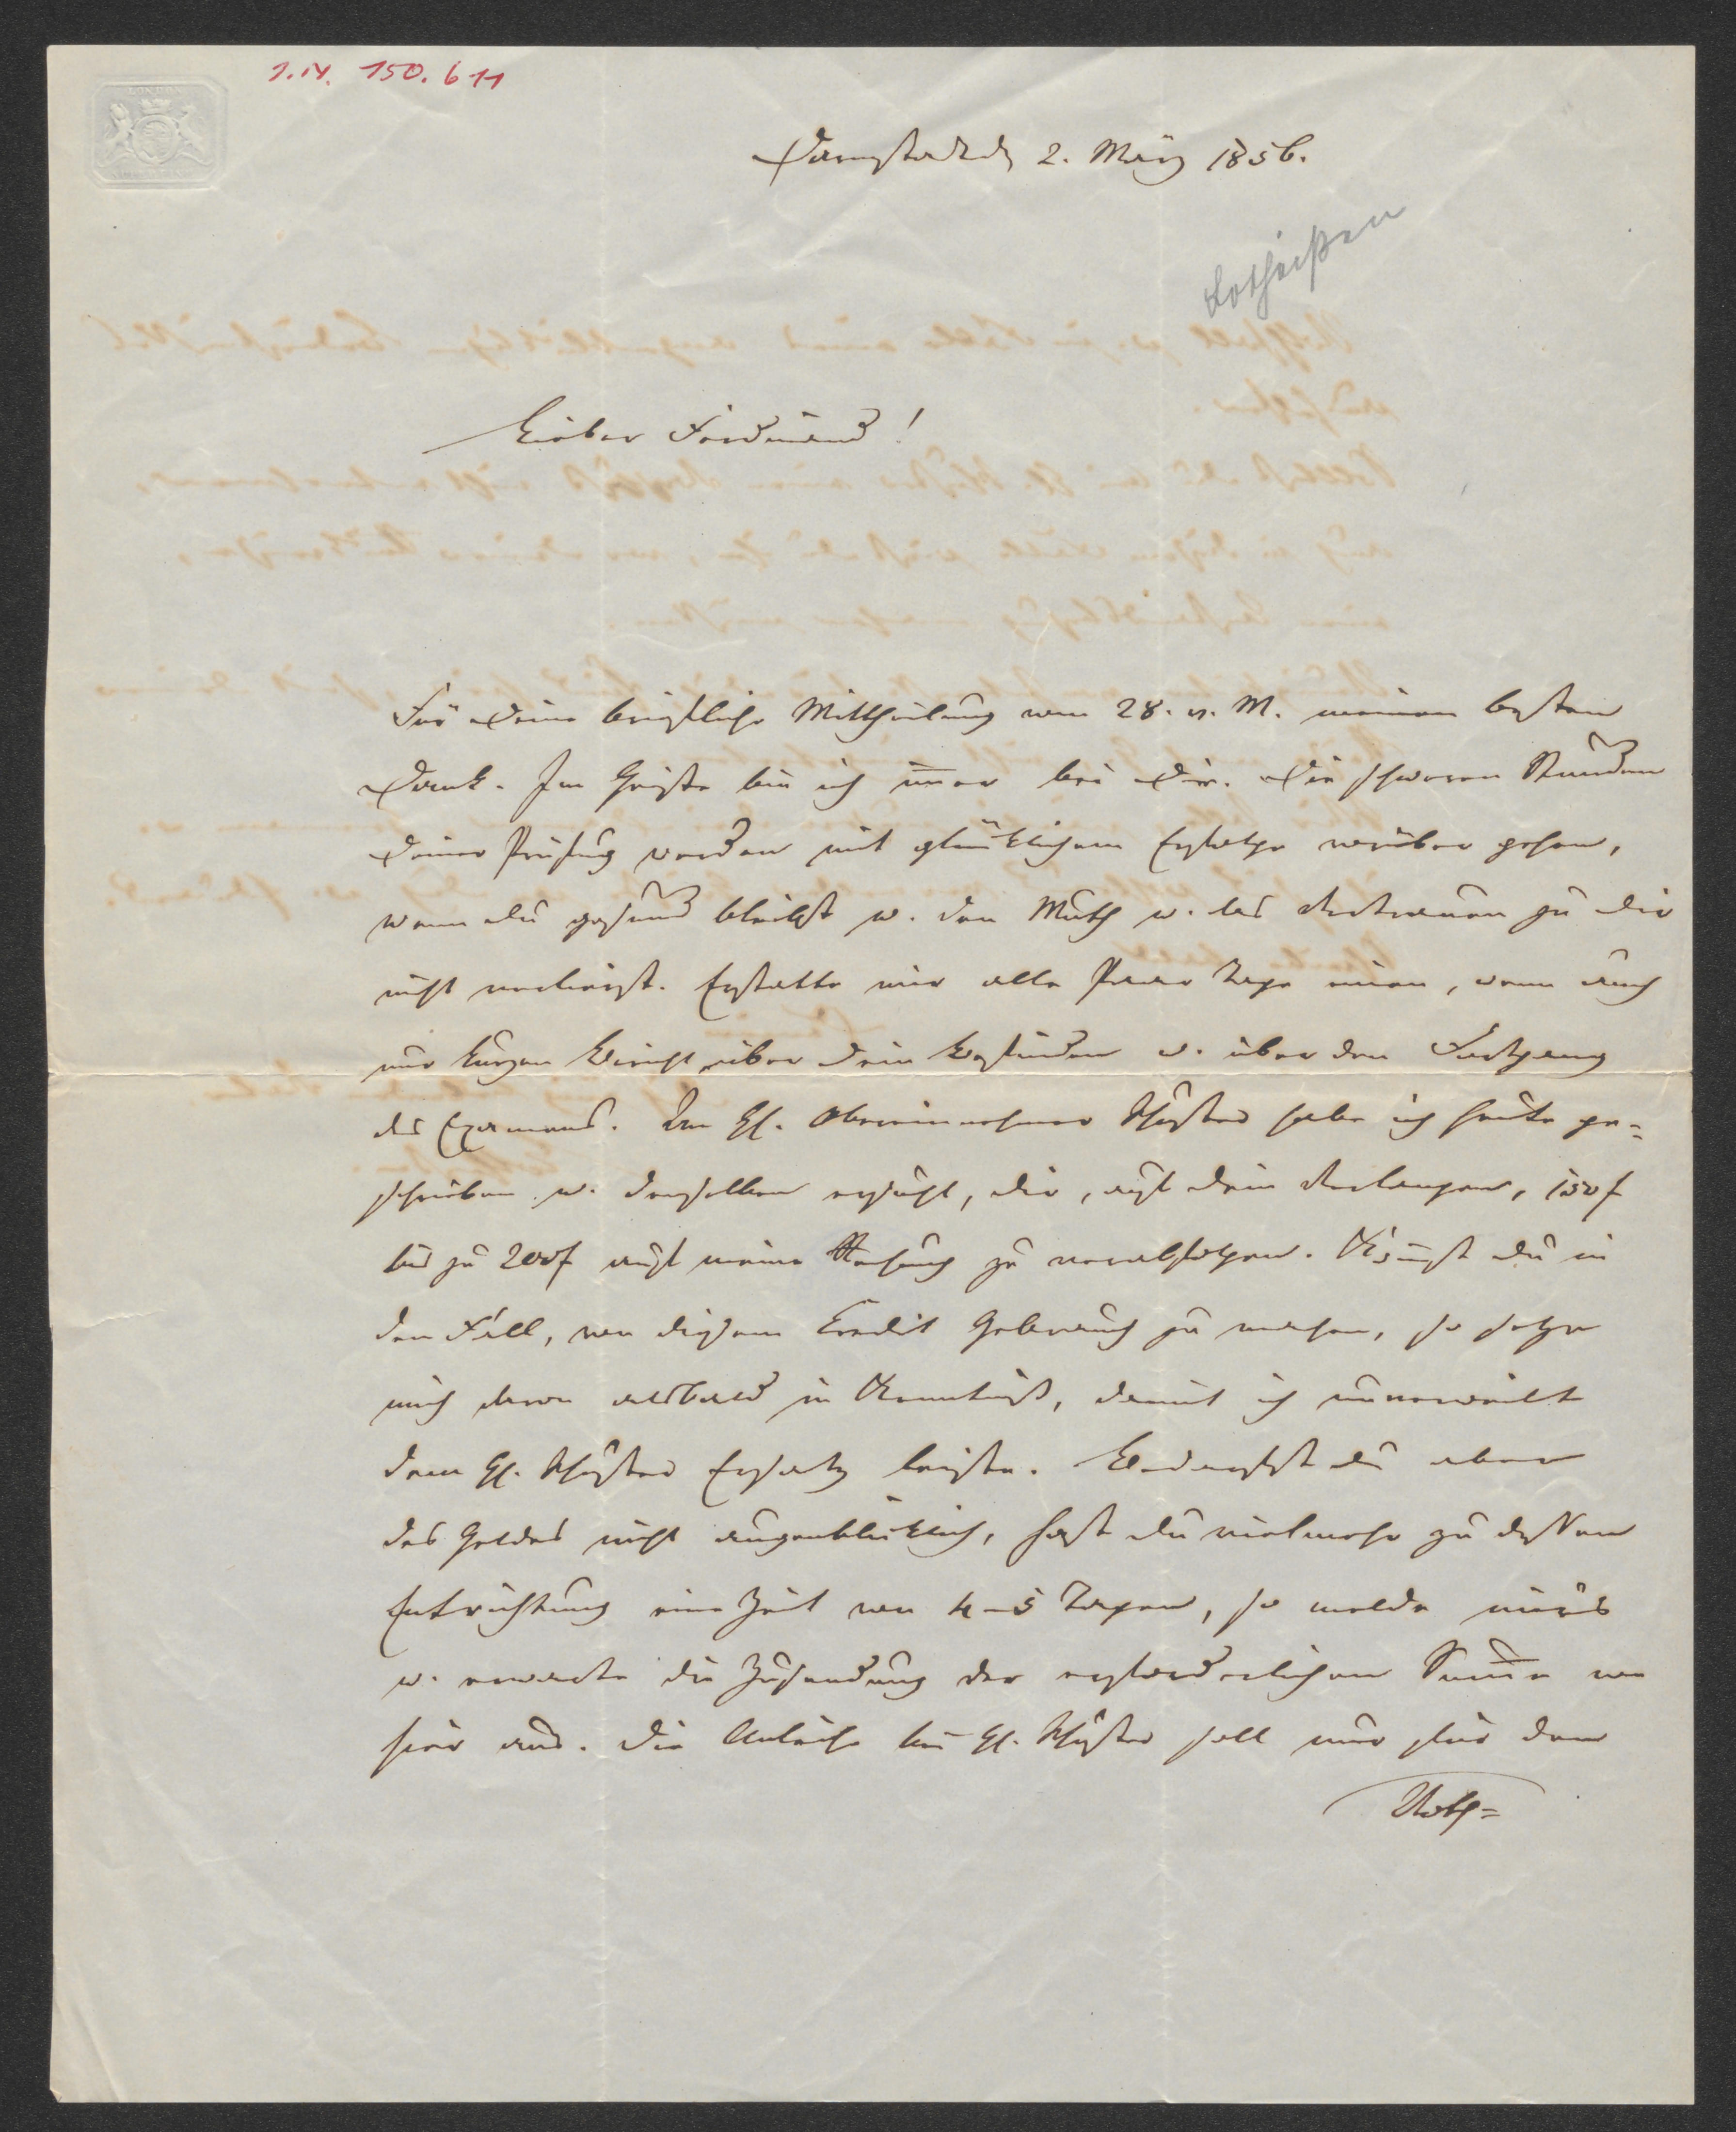 I.N. 150.611
LONDON
Darmstadt d. 2. März 1856.
Lotheißen
Lieber Ferdinand!
Für Deine briefliche Mittheilung vom 28. v. M. meinen besten
Dank. Im Geiste bin ich im̅er bei Dir. Die schweren Stunden
Deiner Prüfung werden mit glücklichem Erfolge vorüber gehen,
wenn Du gesund bleibst u. den Muth u. das Vertrauen zu Dir
nicht verlierst. Erstatte mir alle Paar Tage einen, wenn auch
nur kurzen Bericht über Dein Befinden u. über den Fortgang
des Examens. Dem H. Obereinnehmer habe ich heute ge=
schrieben u. denselben ersucht, Dir, auf Dein Verlangen, 150 f
bis zu 200 f auf meine Rechnung zu verabfolgen. Kom̅st Du in
den Fall, von diesem Credit Gebrauch zu machen, so setze
mich davon alsbald in Kenntniß, damit ich unverweilt
dem H. Ersatz leiste. Bedarfst Du aber
des Geldes nicht augenblicklich, hast Du vielmehr zu dessen
Entrichtung eine Zeit von 4–5 Tagen, so melde mir's
u. erwarte die Zusendung der erforderlichen Sum̅e von
hier aus. Die Anleihe bei H. soll nur für den
Noth=